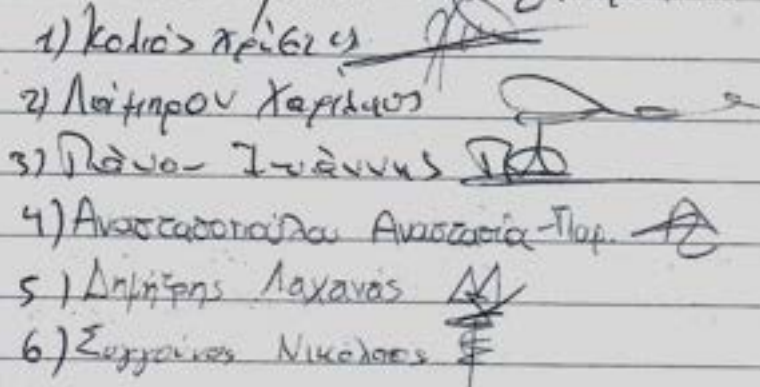 1) Κολιός Χρήστος
2) Λάμπρου Χαρίλαος
3) Πάνου Ιωάννης
4) Αναστασοπούλου Αναστασία-Παρ.
5) Δημήτρης Λαχανάς
6) Συγγούνας Νικόλαος